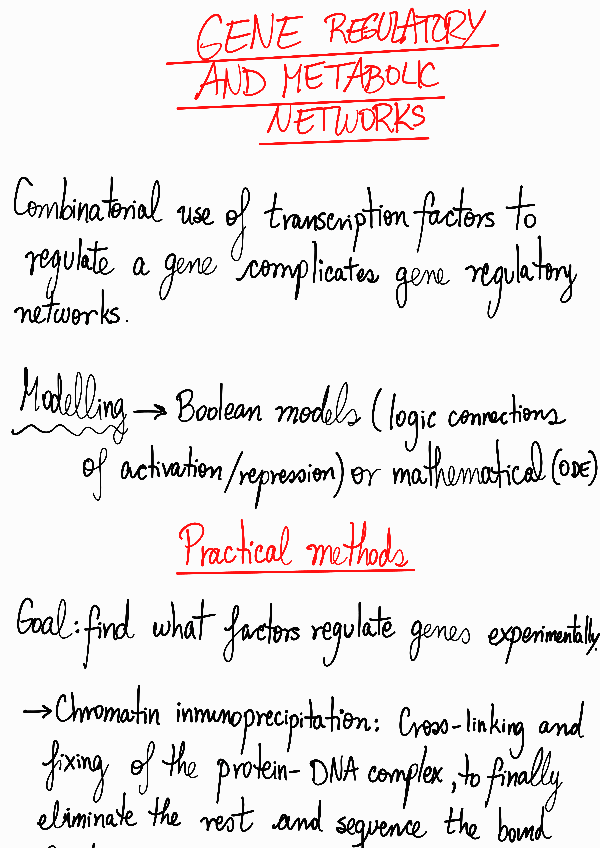 GENE REGULATORY
AND METABOLIC
NETWORKS
Combinatorial use of transcription factors to
regulate a gene complicates gene regulatory
networks.
Modelling → Boolean models (logic connections
of activation/repression) or mathematical (ODE)
Practical methods
Goal: find what factors regulate genes experimentally.
→ Chromatin inmunoprecipitation: Cross-linking and
fixing of the protein-DNA complex, to finally
eliminate the rest and sequence the bound